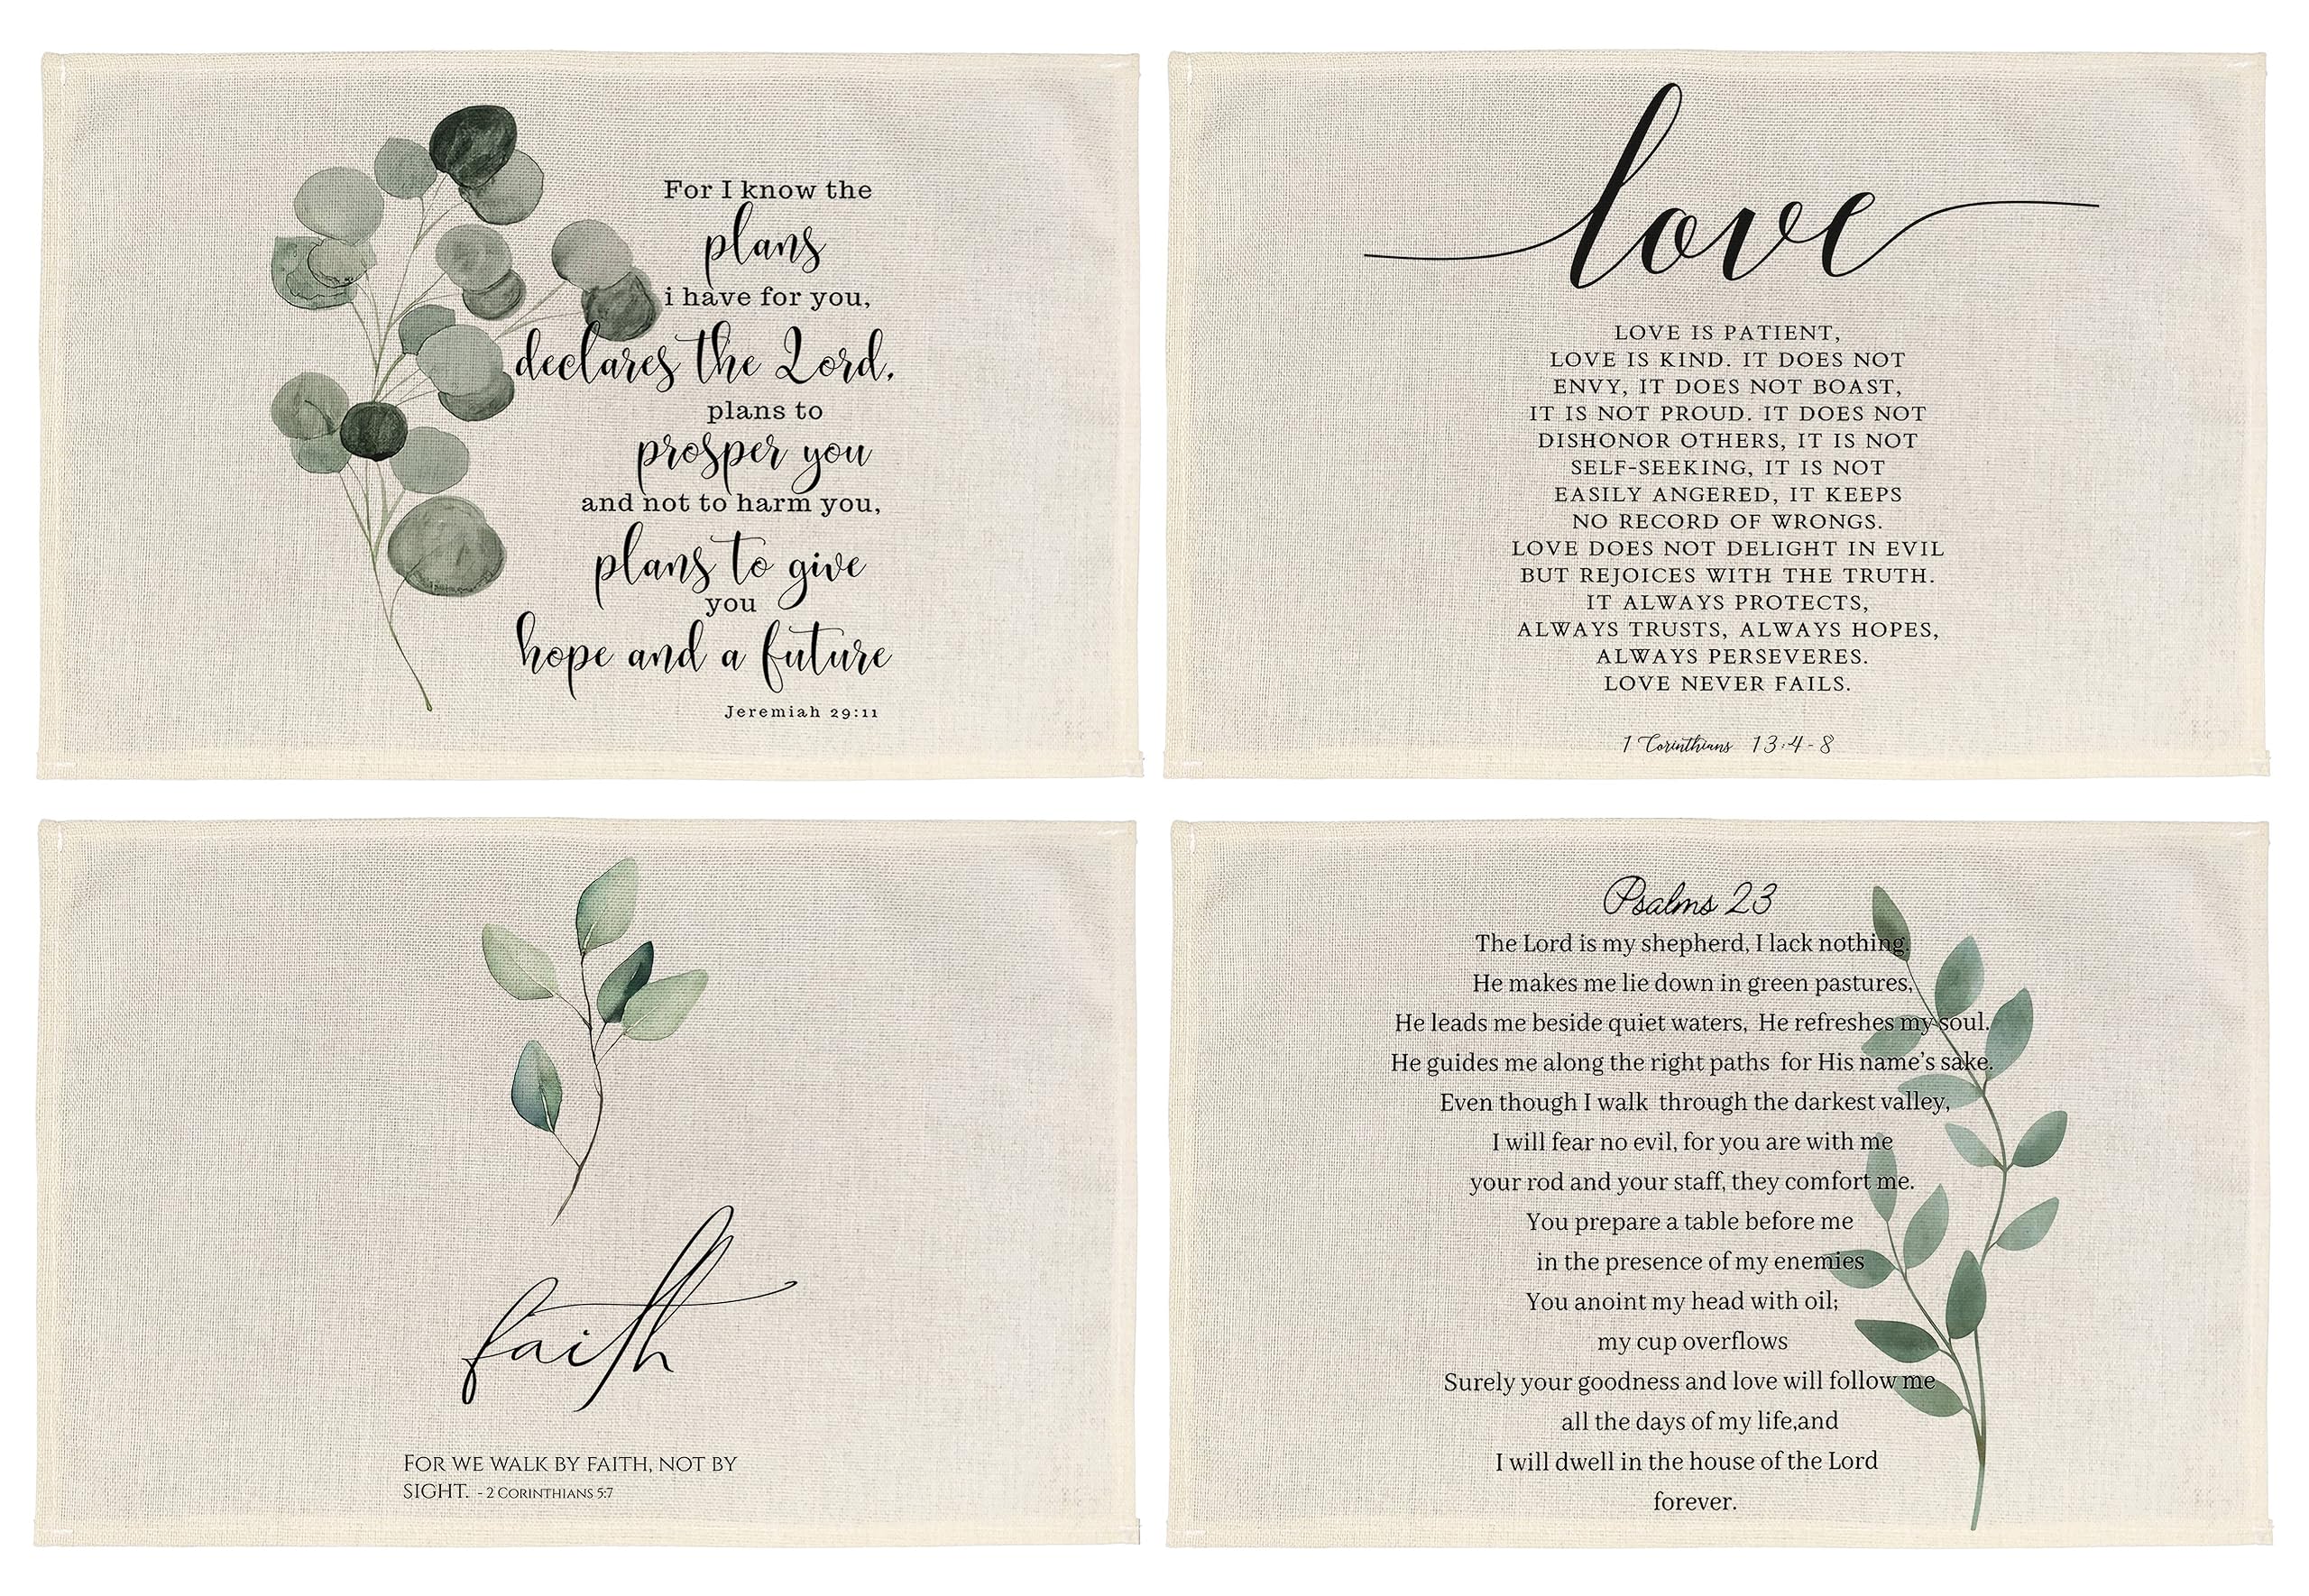 For I know the
plans
i have for you,
declares the Lord,
plans to
prosper you
and not to harm you,
plans to give
you
hope and a future
Jeremiah 29:11
love
LOVE IS PATIENT,
LOVE IS KIND. IT DOES NOT
ENVY, IT DOES NOT BOAST,
IT IS NOT PROUD. IT DOES NOT
DISHONOR OTHERS, IT IS NOT
SELF-SEEKING, IT IS NOT
EASILY ANGERED, IT KEEPS
NO RECORD OF WRONGS.
LOVE DOES NOT DELIGHT IN EVIL
BUT REJOICES WITH THE TRUTH.
IT ALWAYS PROTECTS,
ALWAYS TRUSTS, ALWAYS HOPES,
ALWAYS PERSEVERES.
LOVE NEVER FAILS.
1 Corinthians 13:4-8
faith
FOR WE WALK BY FAITH, NOT BY
SIGHT. - 2 CORINTHIANS 5:7
Psalms 23
The Lord is my shepherd, I lack nothing.
He makes me lie down in green pastures,
He leads me beside quiet waters, He refreshes my soul.
He guides me along the right paths for His name's sake.
Even though I walk through the darkest valley,
I will fear no evil, for you are with me
your rod and your staff, they comfort me.
You prepare a table before me
in the presence of my enemies
You anoint my head with oil;
my cup overflows
Surely your goodness and love will follow me
all the days of my life,and
I will dwell in the house of the Lord
forever.